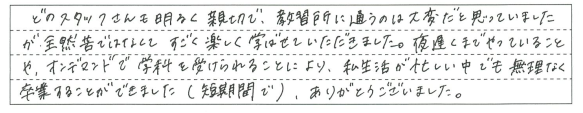 どのスタッフさんも明るく親切で、教習所に通うのは大変だと思っていました
が、全然苦ではなくて すごく楽しく学ばせていただきました。夜遅くまでやっていること
や、オンデマンドで学科を受けられることにより、私生活が忙しい中でも無理なく
卒業することができました(短期間で)、ありがとうございました。